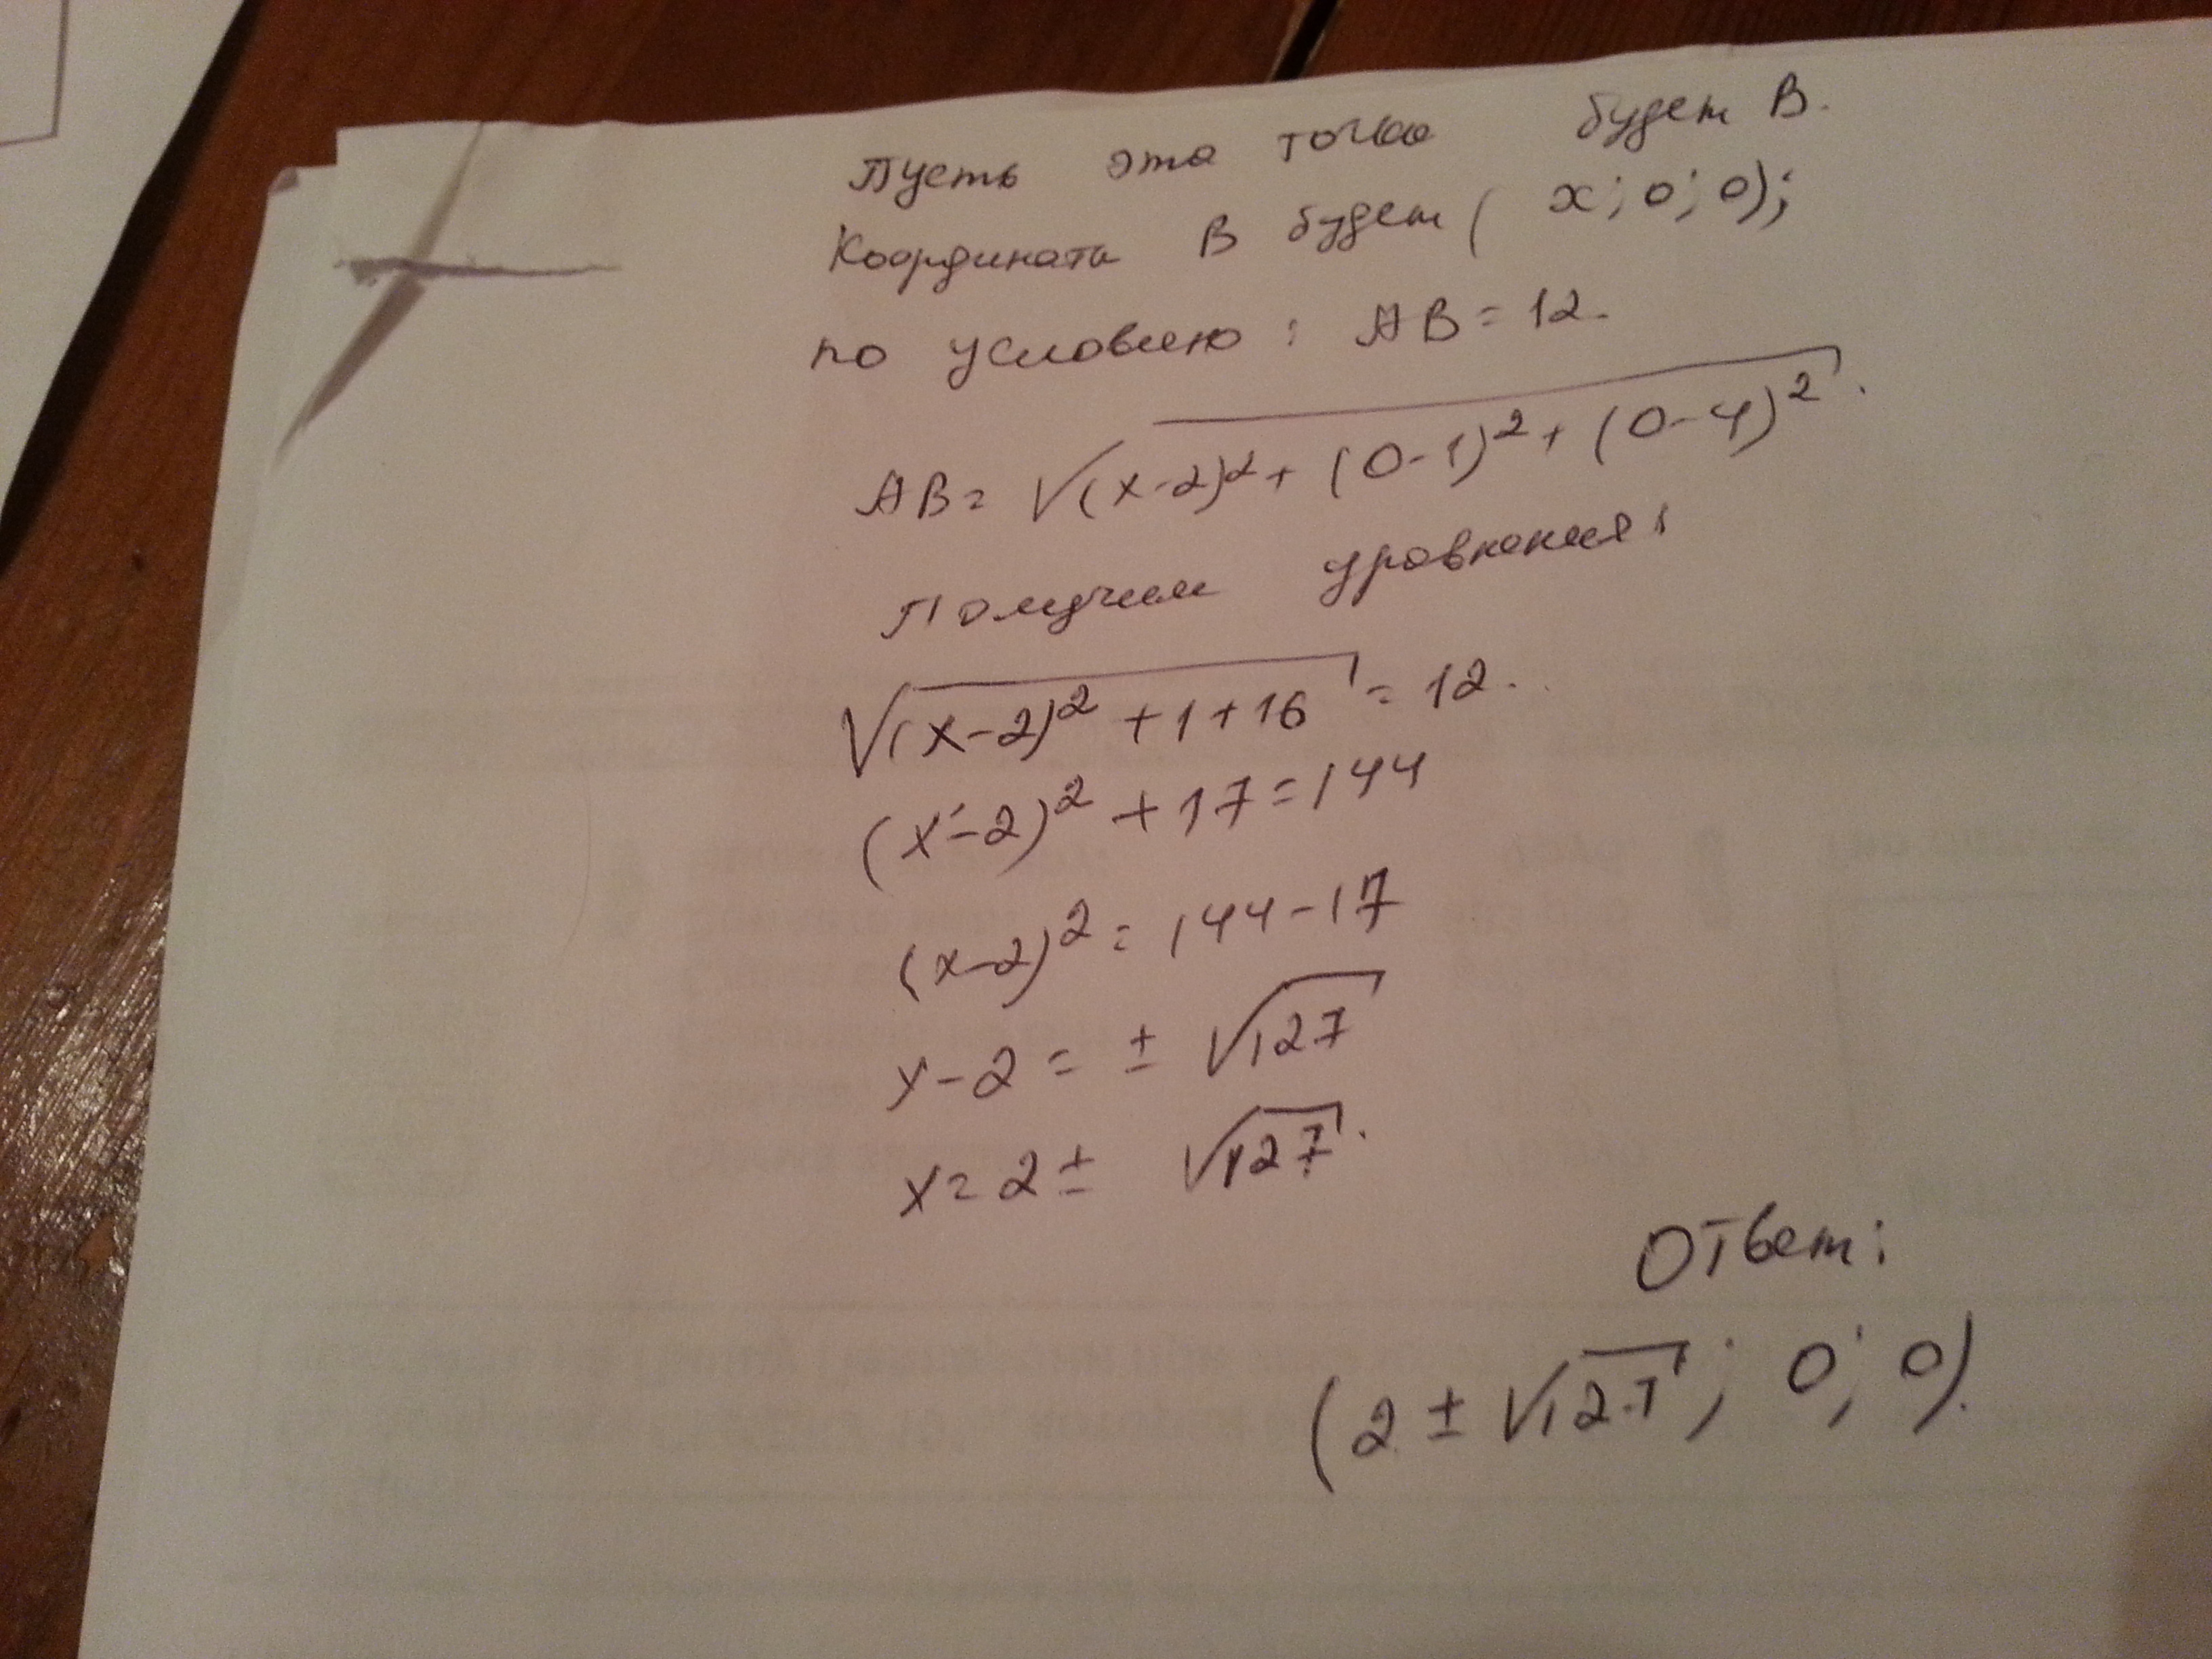 Пусть эта точка будет В.
Координата В будет ( x; 0; 0);
по условию: АВ = 12.
АВ = √(x-2)² + (0-1)² + (0-4)².
Получим уравнения:
√(x-2)² + 1 + 16 = 12.
(x-2)² + 17 = 144
(x-2)² = 144-17
x-2 = ± √127
x = 2 ± √127.
Ответ:
(2 ± √127; 0; 0).